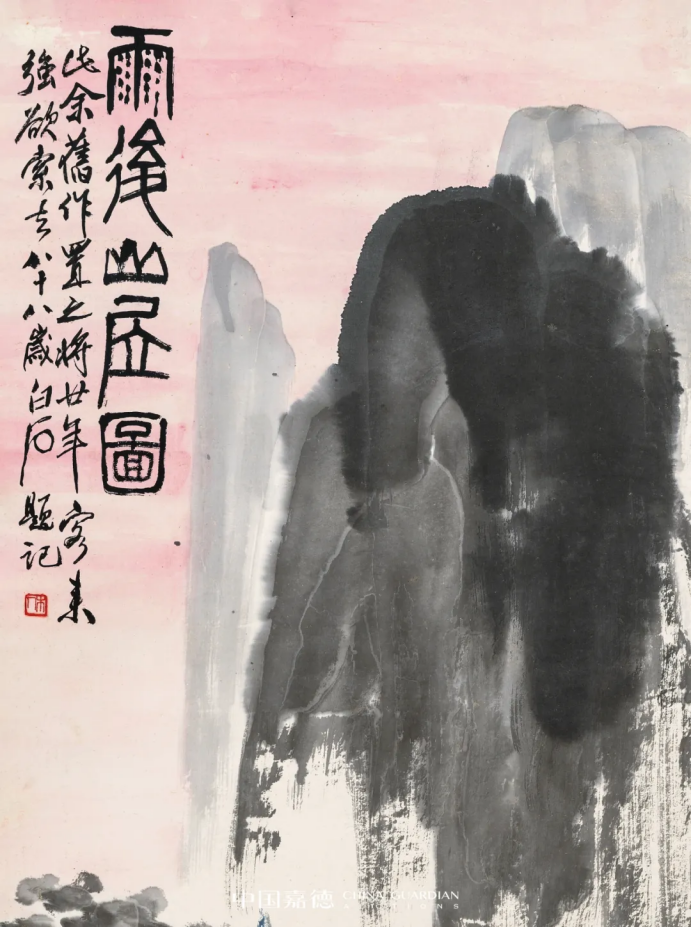 雨後山居圖
此余舊作置之將廿年客來
強欲索去八十八歲白石題記
中国嘉德 CHINA GUARDIAN
AUCTIONS